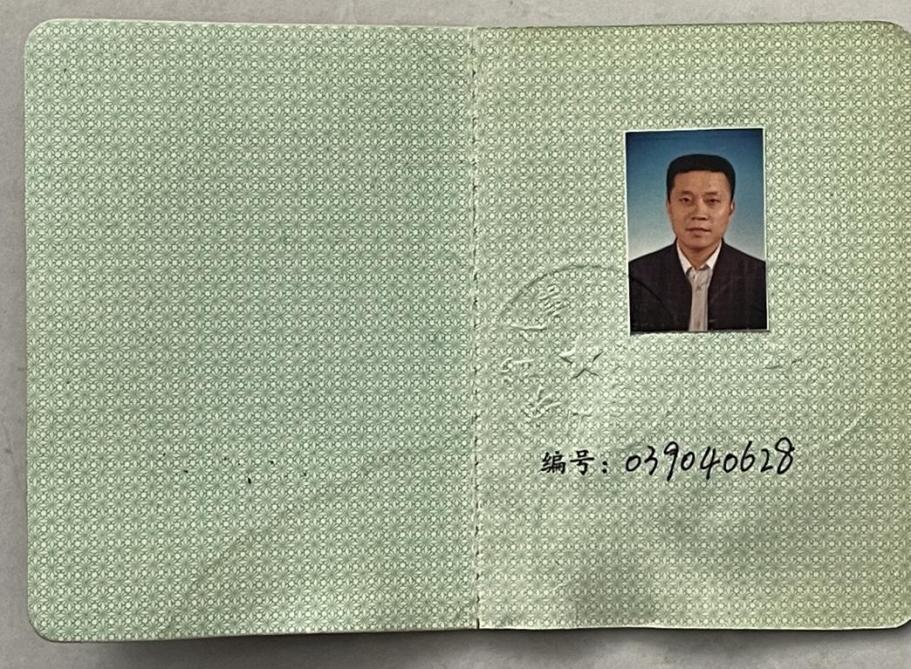 编号：039040628